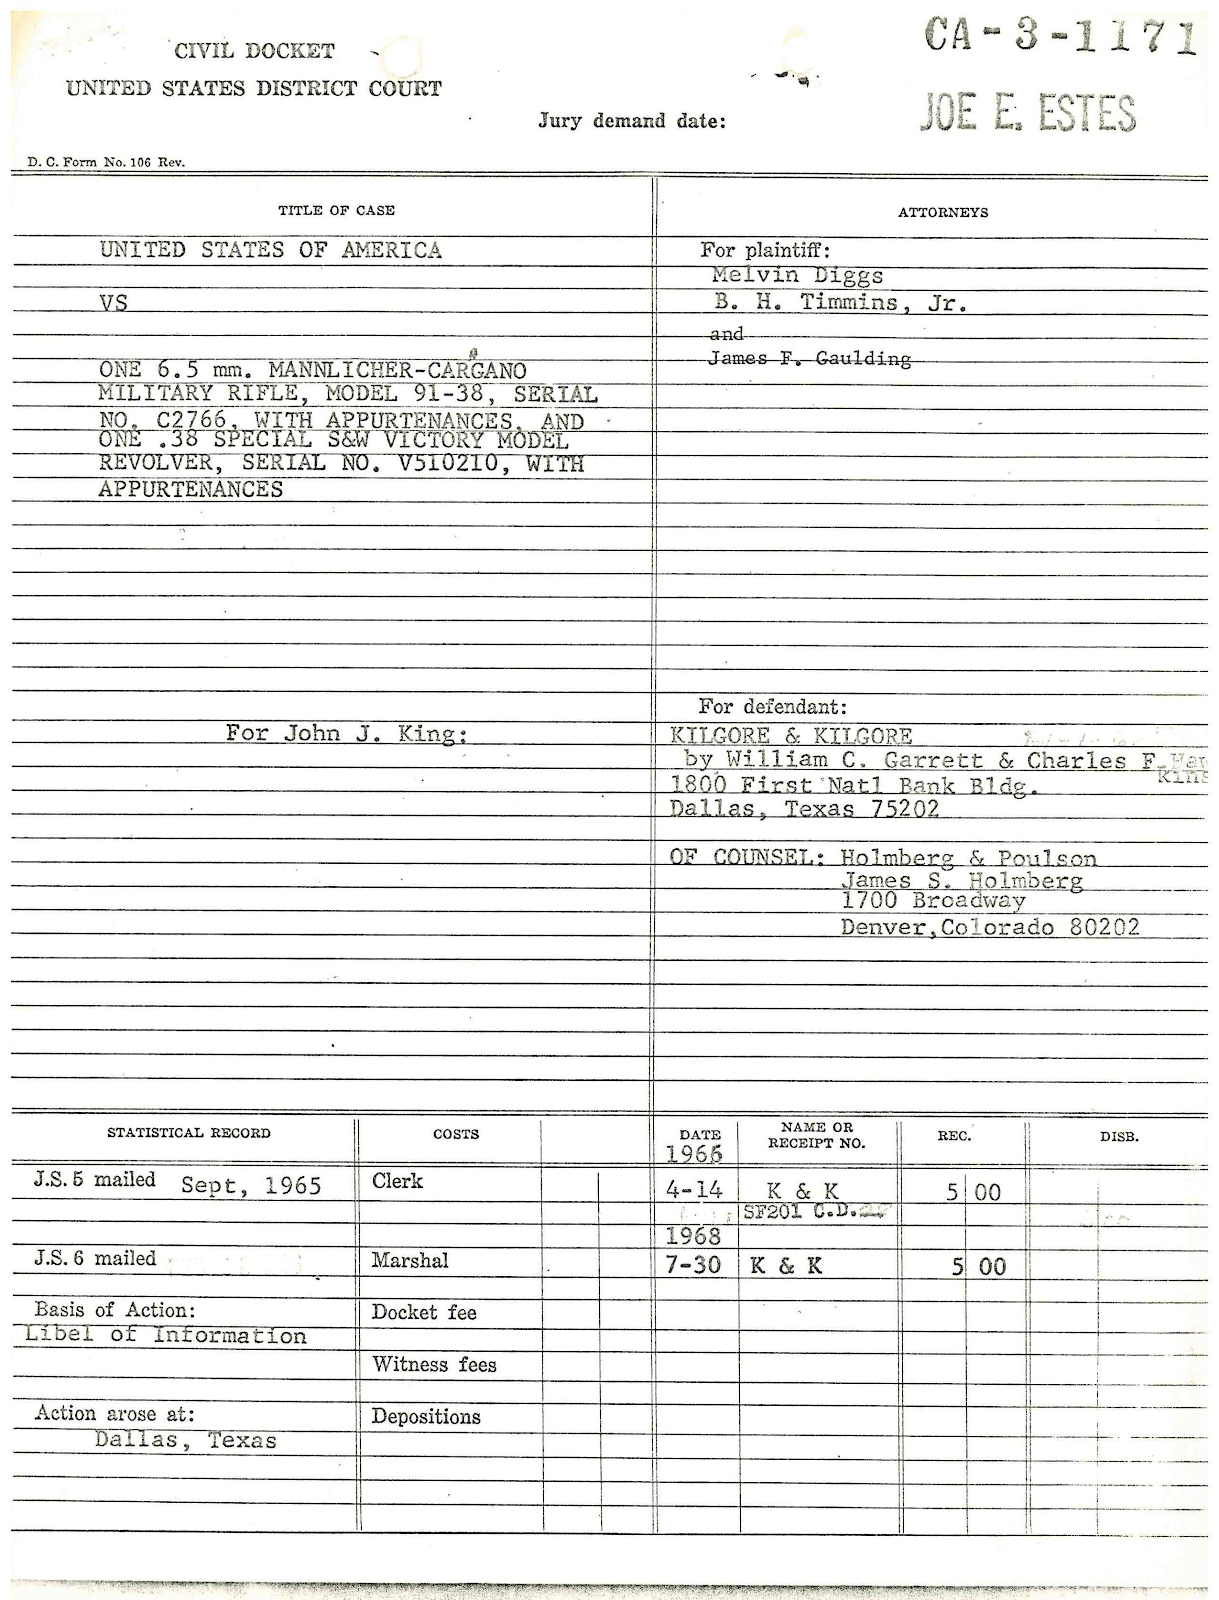 CIVIL DOCKET
UNITED STATES DISTRICT COURT
CA-3-1171
JOE E. ESTES
Jury demand date:
D. C. Form No. 106 Rev.
TITLE OF CASE
UNITED STATES OF AMERICA
VS
ONE 6.5 mm. MANNLICHER-CARGANO
MILITARY RIFLE, MODEL 91-38, SERIAL
NO. C2766, WITH APPURTENANCES, AND
ONE .38 SPECIAL S&W VICTORY MODEL
REVOLVER, SERIAL NO. V510210, WITH
APPURTENANCES
For John J. King:
ATTORNEYS
For plaintiff:
Melvin Diggs
B. H. Timmins, Jr.
and
James F. Gaulding
For defendant:
KILGORE & KILGORE
by William C. Garrett & Charles F. Haw
kins
1800 First Natl Bank Bldg.
Dallas, Texas 75202
OF COUNSEL: Holmberg & Poulson
James S. Holmberg
1700 Broadway
Denver, Colorado 80202
STATISTICAL RECORD COSTS DATE NAME OR RECEIPT NO. REC. DISB.
1966
J.S. 5 mailed Sept, 1965 Clerk 4-14 K & K 5 00
SF201 C.D.
1968
J.S. 6 mailed Marshal 7-30 K & K 5 00
Basis of Action: Docket fee
Libel of Information
Witness fees
Action arose at: Depositions
Dallas, Texas